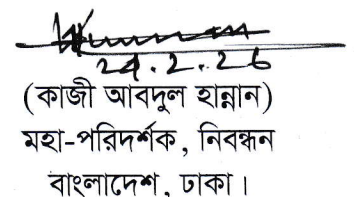 ২৫.২.২৬
(কাজী আবদুল হান্নান)
মহা-পরিদর্শক, নিবন্ধন
বাংলাদেশ, ঢাকা।